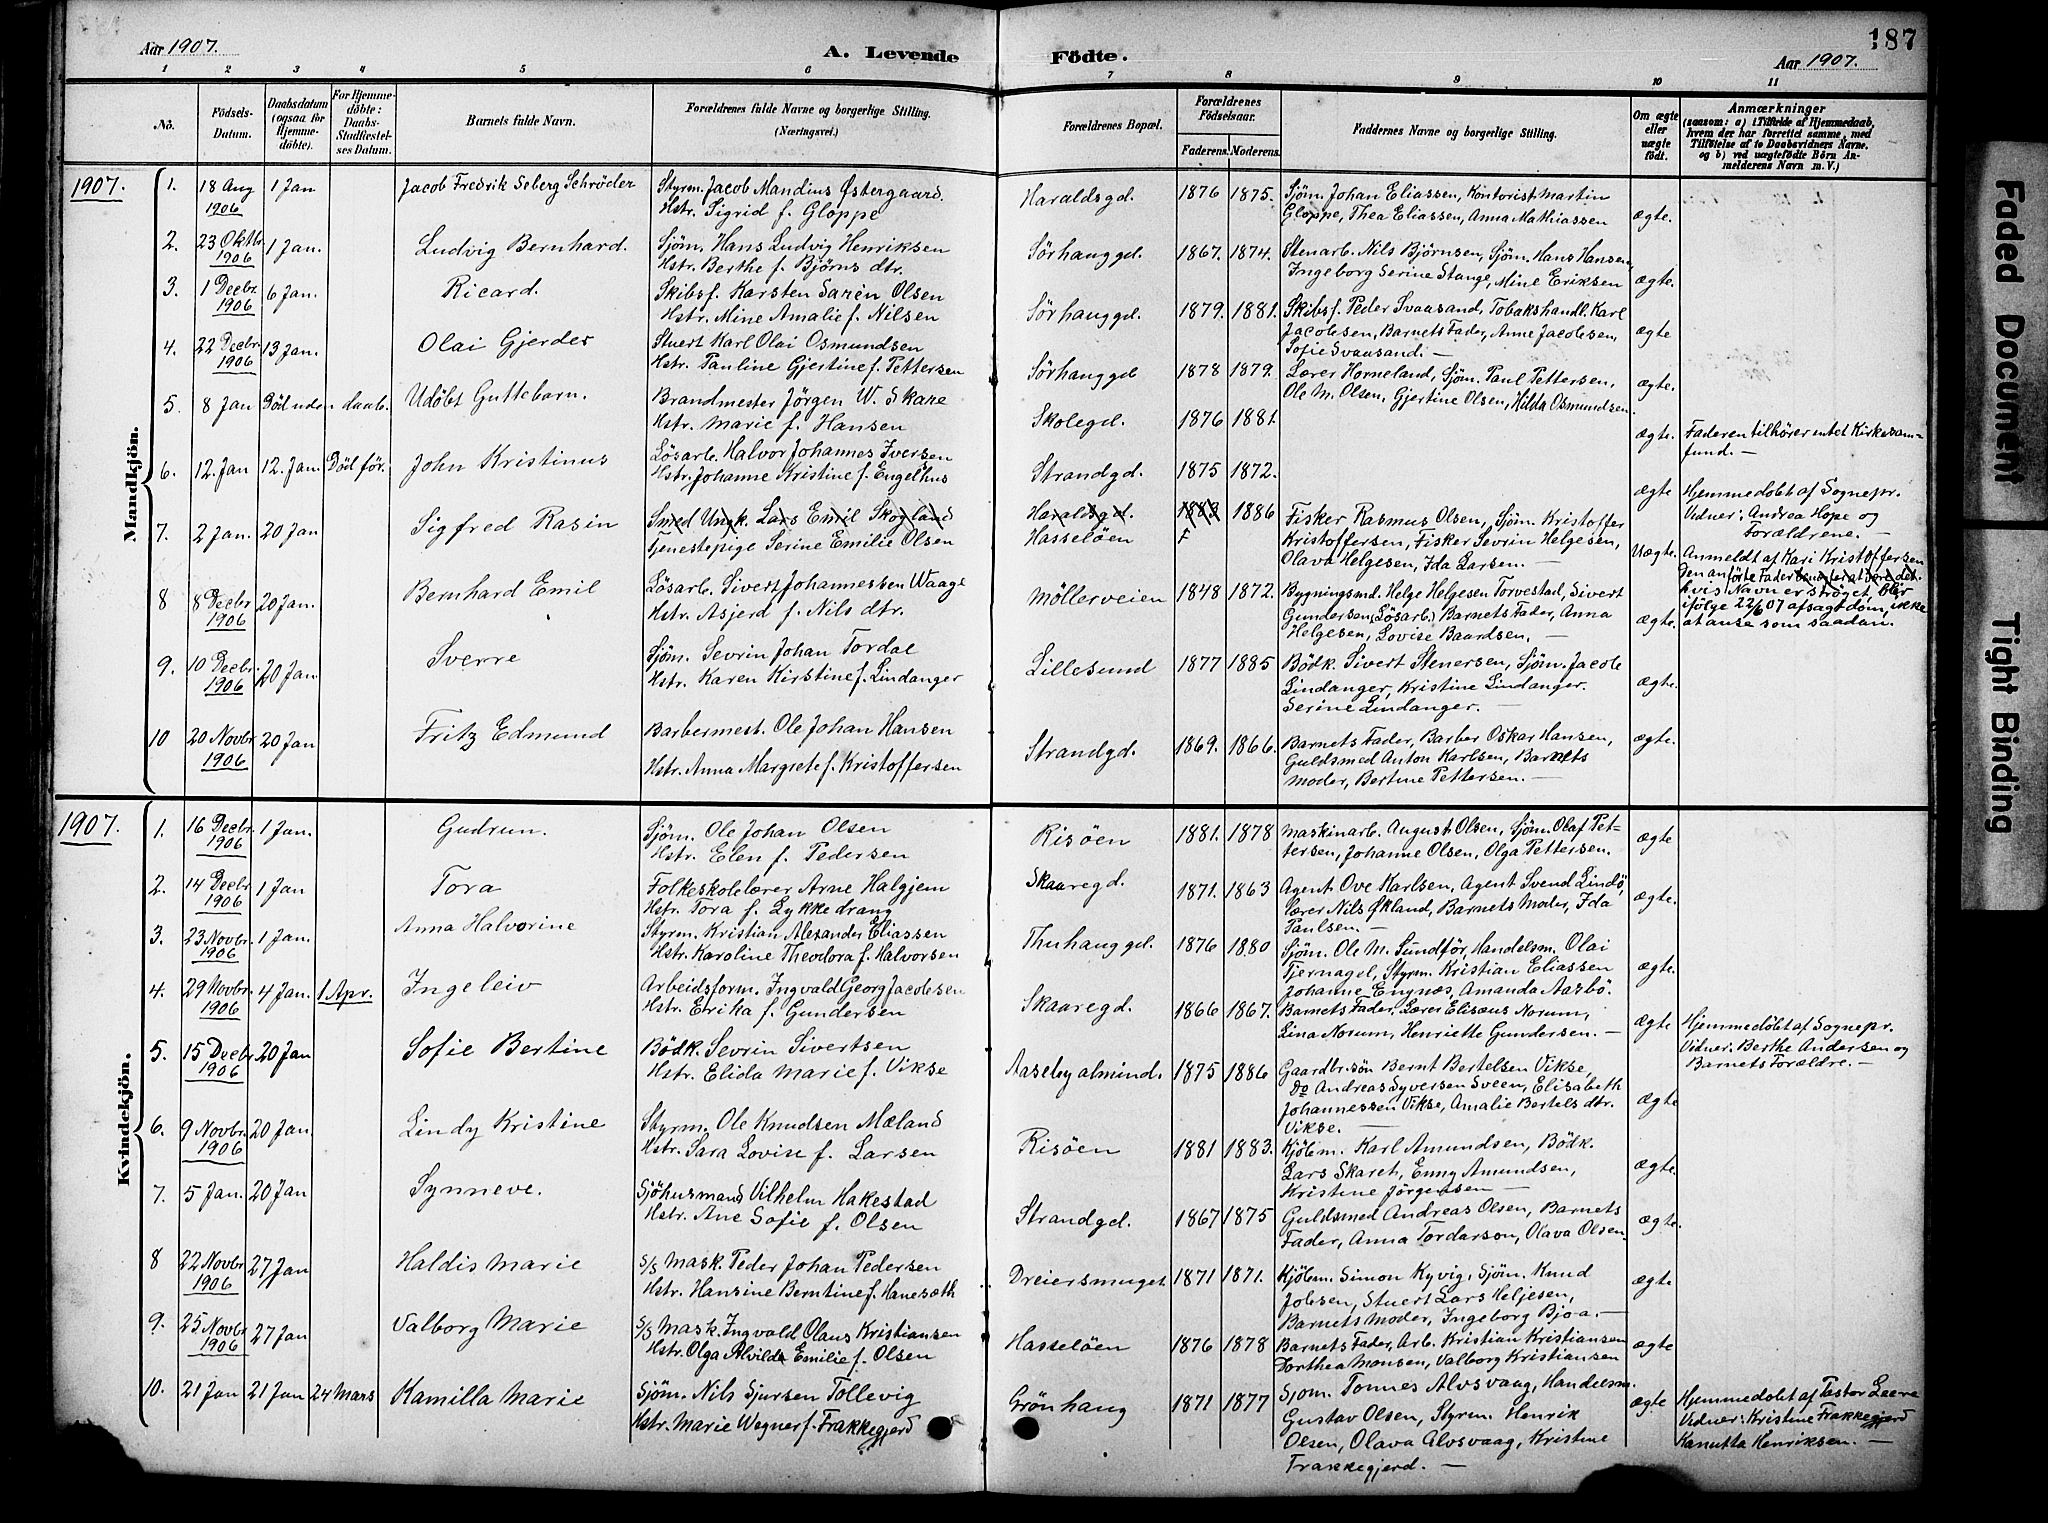 Aar 1907.
A. Levende
Födte.
187
Aar 1907.
1 2 3 4 5 6 7 8 9 10 11
No.
Födsels-Datum.
Daabsdatum (ogsaa for Hjemmedöbte).
For Hjemmedöbte: Daabs-Stadfestelses Datum.
Barnets fulde Navn.
Forældrenes fulde Navne og borgerlige Stilling. (Næringsvei.)
Forældrenes Bopæl.
Forældrenes Födselsaar.
Faderens. Moderens.
Faddernes Navne og borgerlige Stilling.
Om ægte eller uægte födt.
Anmærkninger
(saasom: a) i Tilfælde af Hjemmedaab, hvem der har forrettet samme, med Tilföielse af to Daabsvidners Navne. og b) ved uægtefödte Börn Anmelderens Navn m. V.)
Mandkjön.
1907.
1. 18 Aug 1906 1 Jan Jacob Fredrik Seberg Schrøder
Styrm. Jacob Mandius Østergaard.
Hstr. Sigrid f. Gloppe
Haraldsgd. 1876 1875.
Sjøm. Johan Eliassen, Kontorist Martin
Gloppe, Thea Eliassen, Anna Mathiassen
ægte.
2. 23 Oktbr. 1906 1 Jan. Ludvig Bernhard.
Sjøm. Hans Ludvig Henriksen
Hstr. Berthe f. Bjørns dtr.
Sörhauggd. 1867. 1874.
Stenarb. Nils Bjørnsen, Sjøm. Hans Hansen,
Ingeborg Serine Stange, Mine Eriksen
ægte.
3. 1 Decbr. 1906 6 Jan. Ricard.
Skibsf. Karsten Sarèn Olsen
Hstr. Mine Amalie f. Nilsen
Sörhauggd. 1879. 1881.
Skibsf. Peder Svaasand, Tobakshandl. Karl
Jacobsen, Barnets Fader, Anne Jacobsen,
Sofie Svaasand. —
ægte
4. 22 Decbr. 1906 13 Jan. Olai Gjerdes
Stuert Karl Olai Osmundsen
Hstr. Pauline Gjertine f. Pettersen
Sörhauggd 1878 1879.
Lærer Horneland, Sjøm. Paul Pettersen,
Ole M. Olsen, Gjertine Olsen, Hilda Osmundsen
ægte.
5. 8 Jan Död uden daab. Udöbt Guttebarn.
Brandmester Jörgen W. Skare
Hstr. Marie f. Hansen
Skolegd. 1876 1881.
ægte.
Faderen tilhører intet Kirkesam-
fund. —
6. 12. Jan 12. Jan Död för. John Kristinus
Lösarb. Halvor Johannes Iversen
Hstr. Johanne Kristine f. Engelhus
Strandgd. 1875 1872.
ægte
Hjemmedöbt af Sognepr.
Vidner: Andrea Hope og
Forældrene. —
7. 2 Jan. 20 Jan Sigfred Rasin
Smed Ungk. Lars Emil Skogland
Tjenestepige Serine Emilie Olsen
Haraldsgd.
Hasselöen
1883 1886
F
Fisker Rasmus Olsen, Sjøm. Kristoffer
Kristoffersen, Fisker Sevrin Helgesen,
Olava Helgesen, Ida Larsen. —
Uægte.
Anmeldt af Kari Kristoffersen
Den anförte Fader benegter at være det.
hvis Navn er ströget, blir
ifölge 22/6 07 afsagt dom, ikke
at anse som saadan.
8 8 Decbr. 1906 20 Jan. Bernhard Emil
Lösarb. Sivert Johannessen Waage
Hstr. Asjerd f. Nils dtr.
Möllerveien 1848 1872.
Bygningsmd. Helge Helgesen Torvestad, Sivert
Gundersen (Lösarb.) Barnets Fader, Anna
Helgesen, Lovise Baardsen. —
ægte.
9. 10 Decbr. 1906 20 Jan. Sverre
Sjøm. Sevrin Johan Tordal
Hstr. Karen Kirstine f. Lindanger
Lillesund 1877 1885
Bödk. Sivert Stenersen, Sjøm. Jacob
Lindanger, Kristine Lindanger.
Serine Lindanger. —
ægte.
10 20 Novbr. 1906 20 Jan Fritz Edmund
Barbermest. Ole Johan Hansen
Hstr. Anna Margrete f. Kristoffersen
Strandgd. 1869. 1866.
Barnets Fader, Barber Oskar Hansen,
Guldsmed Anton Karlsen, Barnets
Moder, Bertine Pettersen. —
ægte.
Kvindekjön.
1907.
1. 16 Decbr. 1906 1 Jan. Gudrun.
Sjøm. Ole Johan Olsen
Hstr. Elen f. Pedersen
Risöen 1881. 1878
Maskinarb. August Olsen, Sjøm. Olaf Pet-
tersen, Johanne Olsen, Olga Pettersen.
ægte
2. 14 Decbr. 1906 1 Jan Tora
Folkeskolelærer Arne Halgjem
Hstr. Tora f. Lykkedrang
Skaaregd. 1871. 1863
Agent Ove Karlsen, Agent Svend Lindö,
Lærer Nils Økland, Barnets Moder, Ida
Paulsen. —
ægte.
3. 23 Novbr. 1906 1 Jan. Anna Halvorine
Styrm. Kristian Alexander Eliassen
Hstr. Karoline Theodora f. Halvorsen
Thuhauggd. 1876 1880
Sjøm. Ole M. Sundför, Handelsm. Olai
Tjernagel, Styrm. Kristian Eliassen
Johanne Engnæs, Amanda Aasbö.
ægte.
4. 29 Novbr. 1906 4 Jan. 1 Apr. Ingeleiv
Arbeidsform. Ingvald Georg Jacobsen
Hstr. Erika f. Gundersen
Skaaregd. 1866 1867.
Barnets Fader, Lærer Elisæus Norum,
Lina Norum, Henriette Gundersen. —
ægte
Hjemmedöbt af Sognepr.
Vidner: Berthe Andersen og
Barnets Forældre. —
5. 15 Decbr. 1906 20 Jan Sofie Bertine
Bödk. Sevrin Sivertsen
Hstr. Elida Marie f. Vikse
Aasebyalmind. 1875 1886
Gaardbr.sön Bernt Bertelsen Vikse,
Do Andreas Syversen Sveen, Elisabeth
Johannessen Vikse, Amalie Bertels dtr.
Vikse. —
ægte
6. 9 Novbr. 1906 20 Jan. Lindy Kristine
Styrm. Ole Knudsen Mæland
Hstr. Sara Lovise f. Larsen
Risöen 1881 1883.
Kjölem. Karl Amundsen, Bödk.
Lars Skaret, Enny Amundsen,
Kristine Jörgensen —
ægte.
7. 5 Jan. 20 Jan Synneve.
Sjöhusmand Vilhelm Hakestad
Hstr. Ane Sofie f. Olsen
Strandgd. 1867 1875
Guldsmed Andreas Olsen, Barnets
Fader, Anna Tordarson, Olava Olsen.
ægte.
8 22 Novbr. 1906 27 Jan Haldis Marie
S/S Mask. Peder Johan Pedersen
Hstr. Hansine Berntine f. Hanesæth
Dreiersmuget 1871 1871.
Kjölem. Simon Kyvig, Sjøm. Knud
Jobsen, Stuert Lars Heljesen,
Barnets Moder, Ingeborg Bjoa. —
ægte
9. 25 Novbr. 1906 27 Jan Valborg Marie
S/S Mask. Ingvald Olaus Kristiansen
Hstr. Olga Alvilda Emilie f. Olsen
Hasselöen 1876 1878
Barnets Fader, Arb. Kristian Kristiansen
Dorthea Monsen, Valborg Kristiansen
ægte
10. 21 Jan 21 Jan 24 Mars Kamilla Marie
Sjøm. Nils Sjursen Tollevig
Hstr. Marie Wegner f. Frakkegjerd
Grönhaug 1871 1877
Sjøm. Tönnes Alvsvaag, Handelsm.
Gustav Olsen, Styrm. Henrik
Olsen, Olava Alvsvaag, Kristine
Frakkegjerd. —
ægte
Hjemmedöbt af Pastor Leere
Vidner: Kristine Frakkegjerd
Kanutta Henriksen. —
Faded Document
Tight Binding